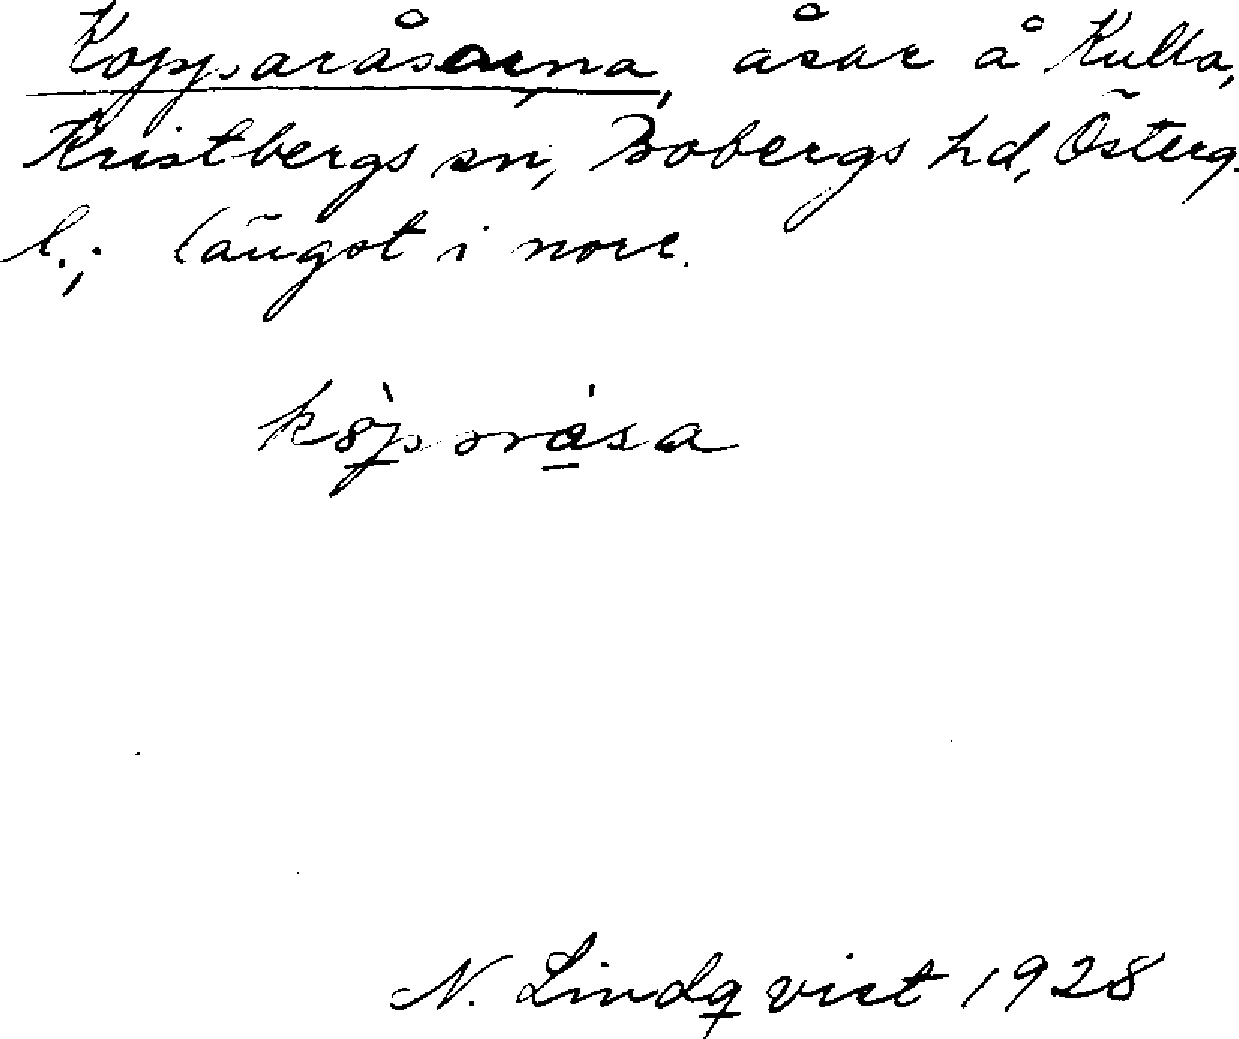 Kopparåsarna, åsar å Kulla,
Kristbergs sn, Bobergs hd, Österg.
l.; längst i norr.
N. Lindqvist 1928